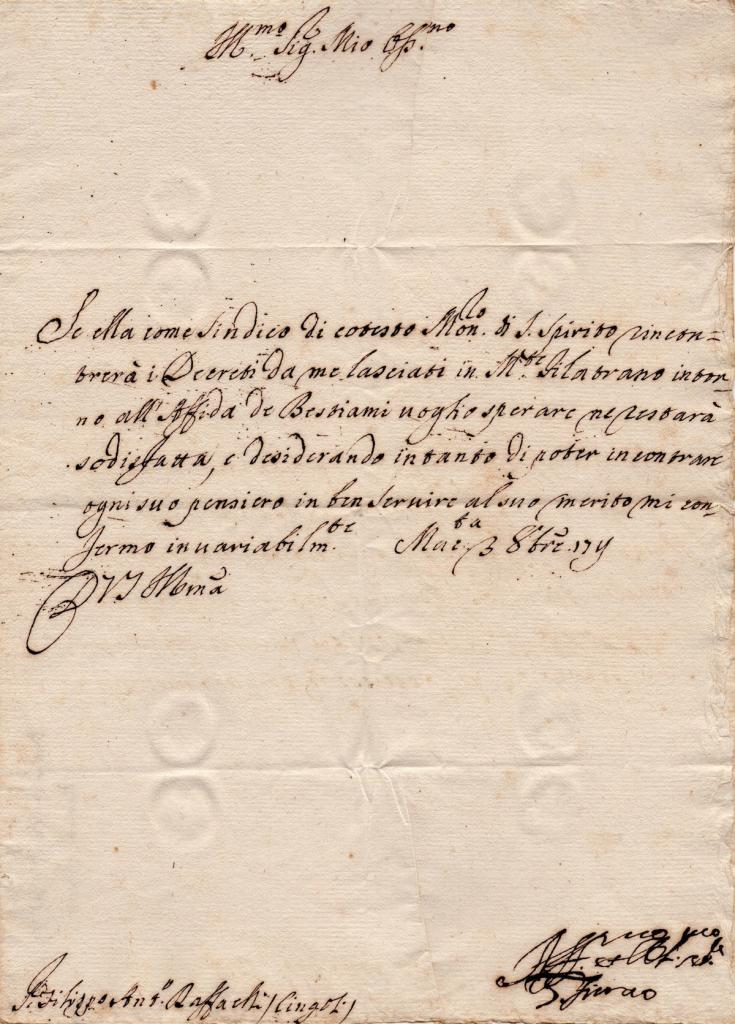 Ill.mo Sig. Mio Oss.mo
Se ella come Sindico di cotesto Mon.lo di S. Spirito rincon=
trerà i Decreti da me lasciati in M.te Filatrano intor=
no all'Affida de Bestiami voglio sperare ne restarà
sodisfatta, e desiderando intanto di poter incontrare
ogni suo pensiero in ben servire al suo merito mi con=
fermo invariabilm.te Mac.ta 3 8bre.
D V S Ill.ma
S.r Filippo Ant.o Raffaelli (Cingoli)